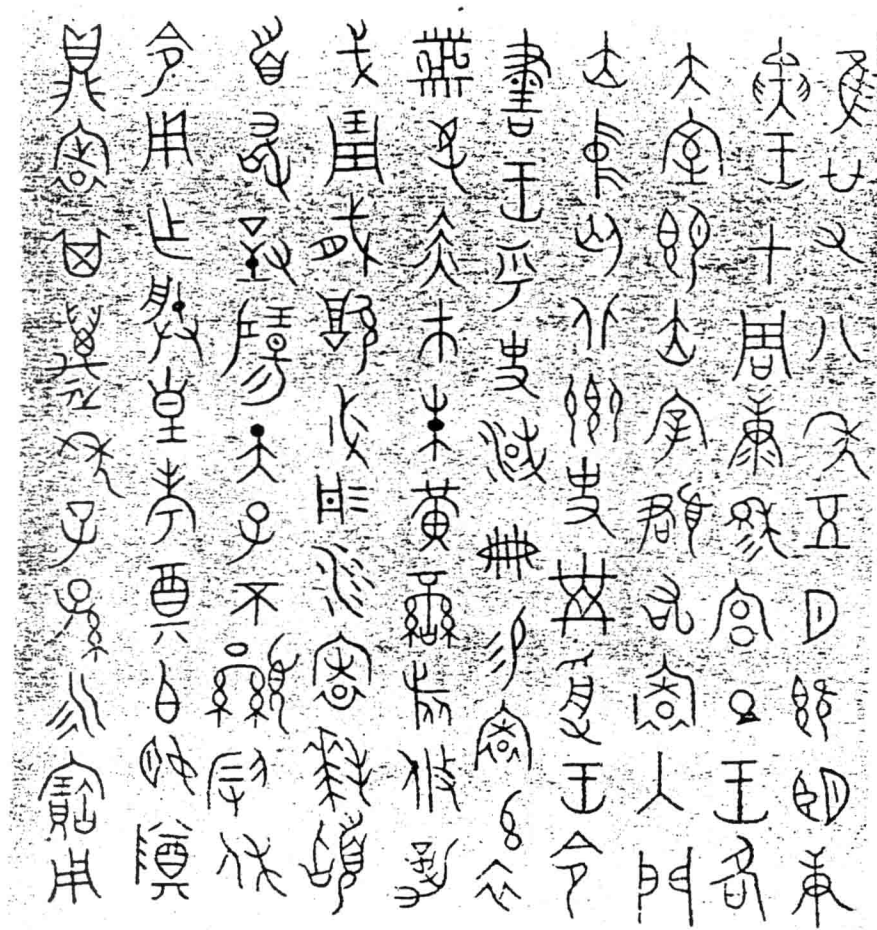 隹廿又八年五月既望庚
寅王才周康穆宮旦王各
大室即立宰頵右寰入門
立中廷北鄉史黹受王令
書王乎史減冊易寰玄衣
黹屯赤市朱黃䜌旂攸勒
戈琱戟厚必彤沙寰拜𩒨
首敢對揚天子不顯叚休
令用乍朕皇考奠白姬尊
鼎寰其邁年子孫永寶用